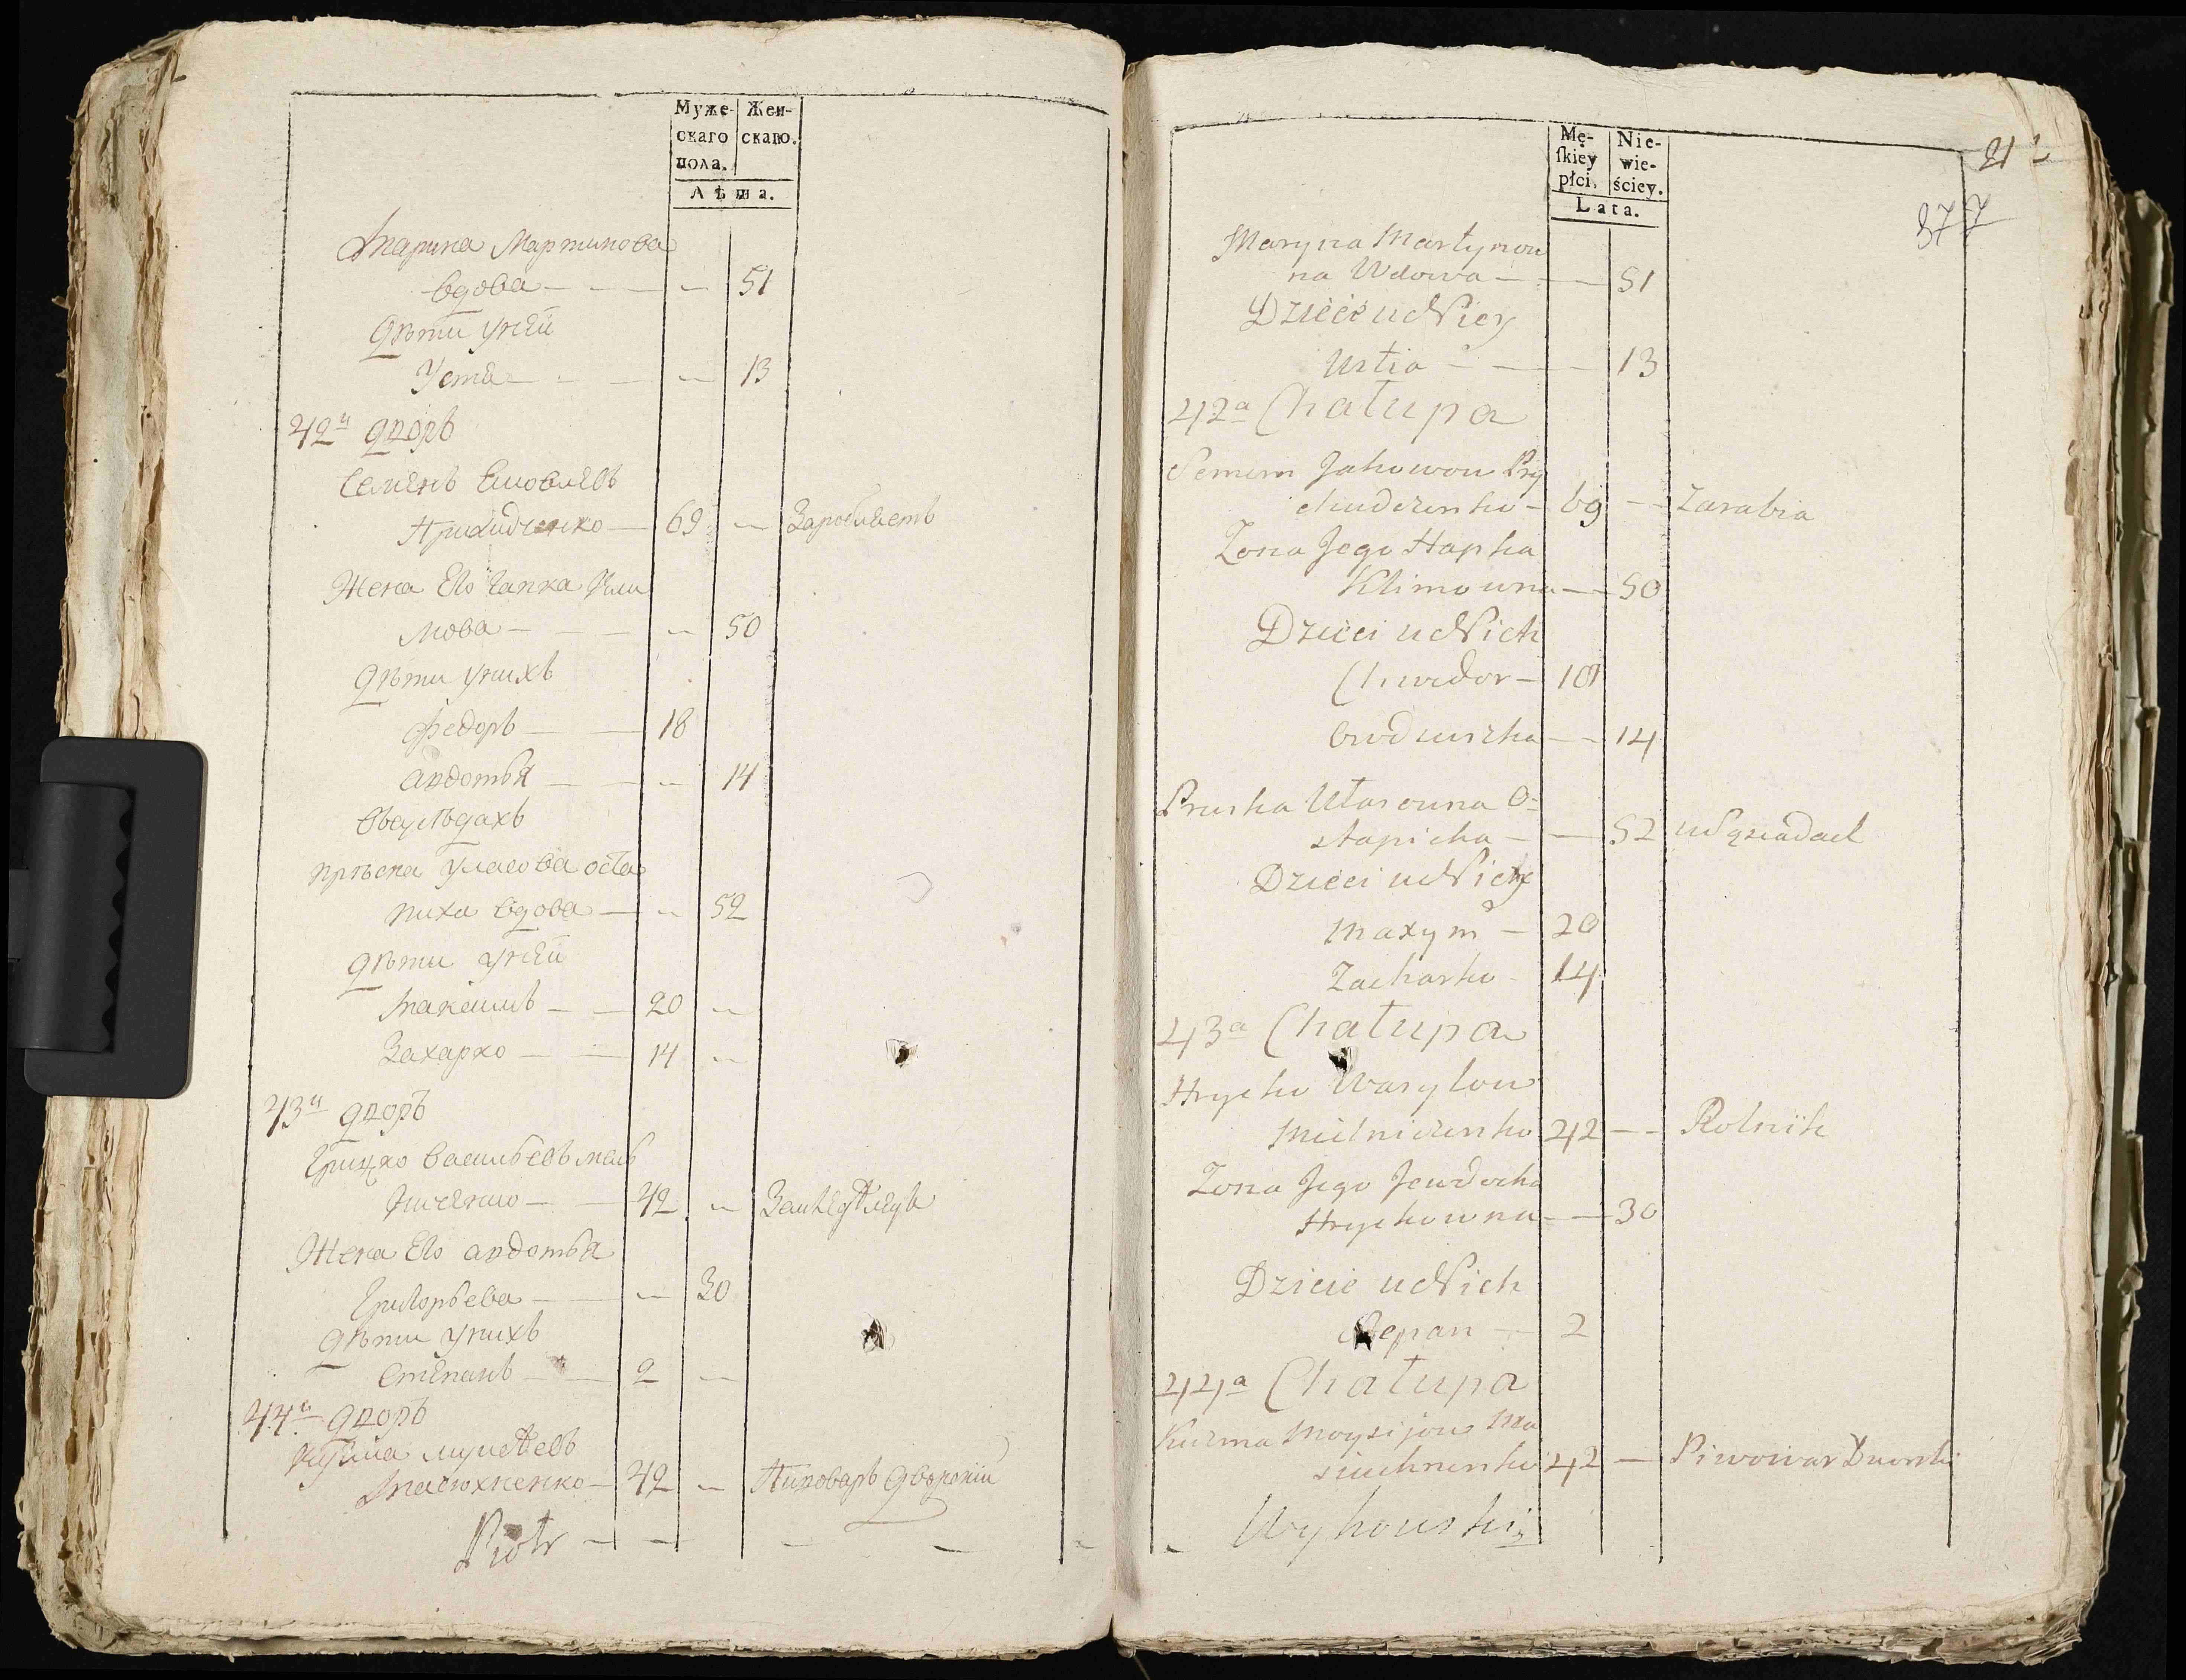 Муже-
скаго
пола.
Жен-
скаго.
Лѣта.
Марина Мартинова
вдова — — — 51
Дѣти унеи
Устя — — — 13
42й дворъ
Семенъ Яковлевъ
Прихидченко — 69 — Заробляетъ
Жена Его Гапка Кли
мова — — — 50
Дѣти унихъ
Федоръ — — 18
Авдотья — — — 14
Всусѣдахъ
Прѣска Уласова Оста
пиха вдова — — 52
Дѣти унеи
Максимъ — — 20 —
Захарко — — 14 —
43й дворъ
Грицко Васильевъ мель
ниченко — — 42 —
Жена Его Авдотья
Григорьева — — 30
Дѣти унихъ
Степанъ — — 2 —
44й дворъ
Кузма
Масюхненко — 42 — Пивоваръ дворскии
Piotr — — — — —
21
377
Mę-
ſkiey
płci.
Nie-
wie-
ściey.
Lata.
Maryna Martynow
na Wdowa — — 51
Dzieci u Niey
Ustia — — 13
42a Chałupa
Semen Jakowow Pry
chudczenko — 69 — Zarabia
Zona Jego Hapka
Klimowna — — 50
Dzieci u Nich
Chwedor — 18
Owduszka — — 14
Pruska Ułasowna O=
stapicha — — 52 w Sąsiadach
Dzieci u Niey
Maxym — 20
Zacharko — 14
43a Chałupa
Hryćko Wasylow
Mielniczenko 42 — — Rolnik
Zona Jego Jewdocha
Hryćkowna — — 30
Dzieci u Nich
Stepan — 2
44a Chałupa
Kuzma Moysijow Ma
siuchnenko 42 — Piwowar Dworski
Wyhowski